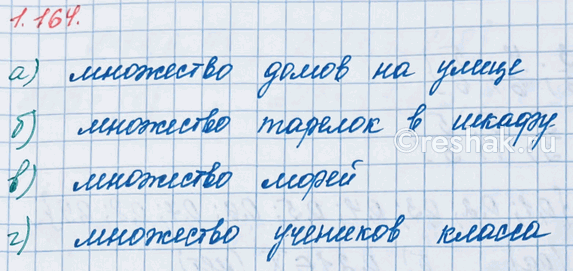 1.164.
а) множество домов на улице
б) множество тарелок в шкафу
reshak.ru
в) множество морей
г) множество учеников класса